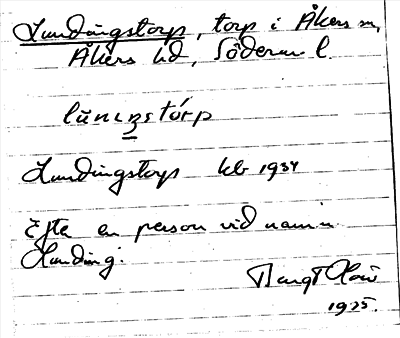 Lundingstorp, torp i Åkers sn,
Åkers hd, Söderm. l.
luniŋstórp
Lundingstorp kb 1934
Efter en person vid namn
Lunding.
Bengt
1935.